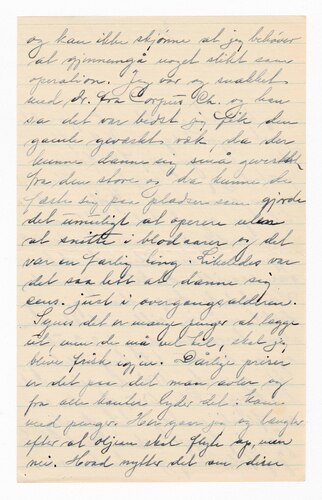 og kan ikke skjønne at jeg behøver
at gjennemgå noget slikt som
operation. Jeg var og snakket
med dr. fra Corpus Ch. og han
sa det var bedst jeg fik den
gamle gevækst væk, da der
kunne danne sig små gevekst
fra den store og da kunne de
fæste sig paa pladser som gjorde
det umuligt at operere uten
at snitte i blodaarer og det
var en farlig ting. Likeledes var
det saa lett at danne sig
just i overgangsalderen.
Synes det er mange penger at lægge
ut, men de må vel til, skal jeg
blive frisk igjen. Dårlige priser
er det paa det man selge og
fra alle kanter lyder det: kom
med penger. Her gaar jeg og længter
efter at oljen skal flyte op, men
nei. Hvad nytter det om, disse